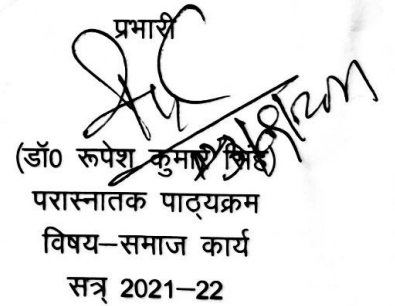 प्रभारी
(डॉ0 रूपेश कुमार सिंह)
परास्नातक पाठ्यक्रम
विषय–समाज कार्य
सत्र् 2021–22